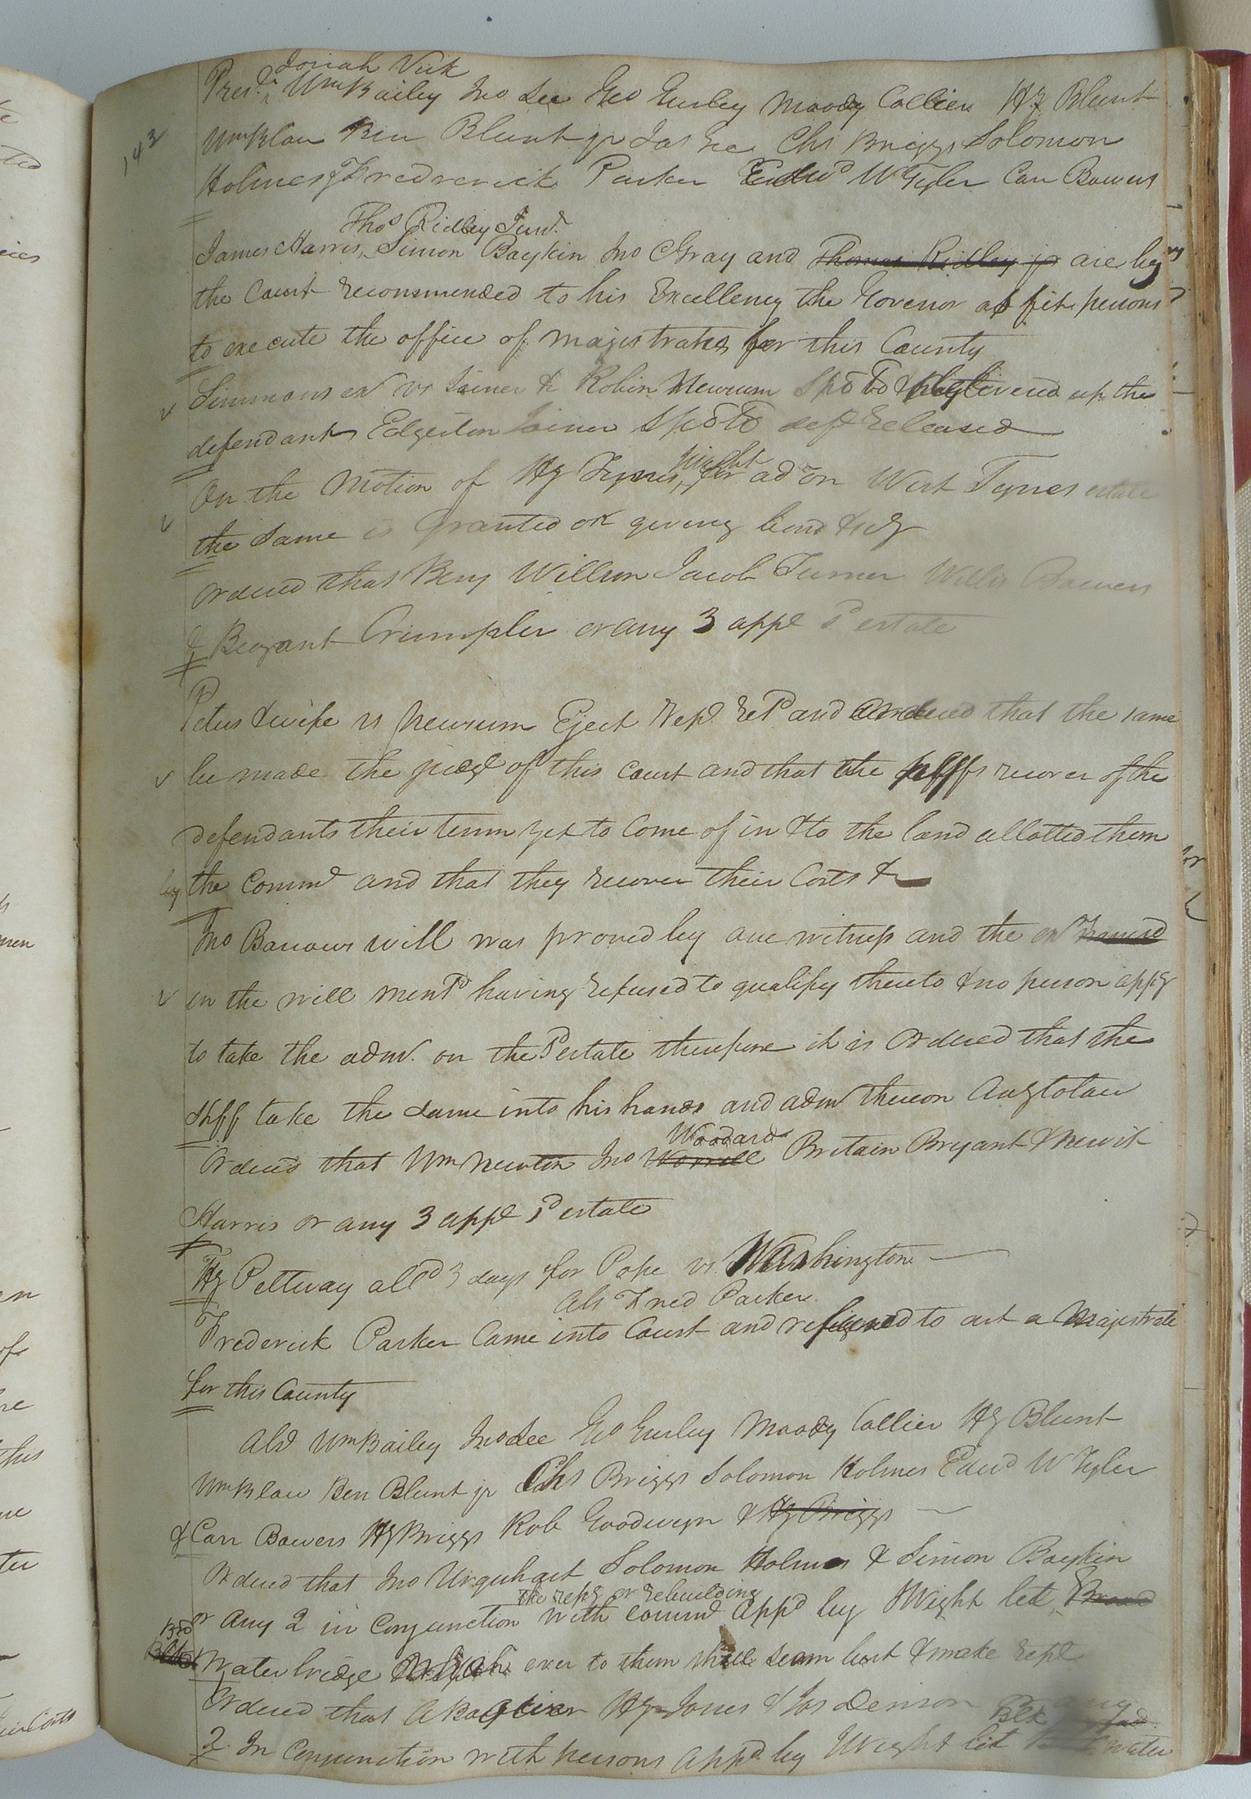 143
Josiah Vick
Pres.t Wm Bailey Jno Lee Geo Gurley Moody Collier Hy Blunt
Wm Blow Ben Blunt jr Jas Gee Chs Briggs Solomon
Holmes Frederick Parker Edwd W Tyler Carr Bowers
Thos Ridley Junr.
James Harris, Simon Boykin Jno C Gray and Thomas Ridley jr are by
the Court recommended to his Excellency the Govenor as fit persons
to execute the office of magistrates for this County
Simmons ex vs Joiner & Robin Newsum delivered up the
defendant Edgerton Joiner deft Released
right
On the Motion of Hy Tynes, for ad'on West Tynes estate
the same is Granted on giving bond &
Ordered that Benj Willson Jacob Turner Willis Bowers
& Bryant Crumpler or any 3 appe Pd estate
Petus & wife vs Newsum Eject Rept Retd and Ordered that the same
be made the judgt of this court and that the plffs recover of the
defendants their term yet to come of in & to the land allotted them
by the Comm.rs and that they recover their Costs &
Jno Barrows will was proved by one witness and the ex
in the will mentd having refused to qualify thereto & no person appg
to take the adm. on the Pd estate therefore it is Ordered that the
Shff take the same into his hands and adm thereon Acc.g to law
Woodard
Ordered that Wm Newton Jno Worrell Britain Bryant & Newit
Harris or any 3 appe Pd estate
Hy Pettway alld 3 days for Pope vs Washington
Abs Fred Parker
Frederick Parker Came into Court and refused to act a Majestrate
for this County
Abs Wm Bailey Jno Lee Geo Gurley Moody Collier Hy Blunt
Wm Blow Ben Blunt jr Chs Briggs Solomon Holmes Edwd W Tyler
& Carr Bowers Hy Briggs Rob Goodwyn & Hy Briggs
Ordered that Jno Urquhart Solomon Holmes & Simon Boykin
the repg or rebuilding
or any 2 in Conjunction with comm.rs Appd by I Wight let
water bridge over to them shall seem best & make rept
Ordered that A Hy Jones & Jos Denson
2 In Conjunction with persons Appd by I Wight let water